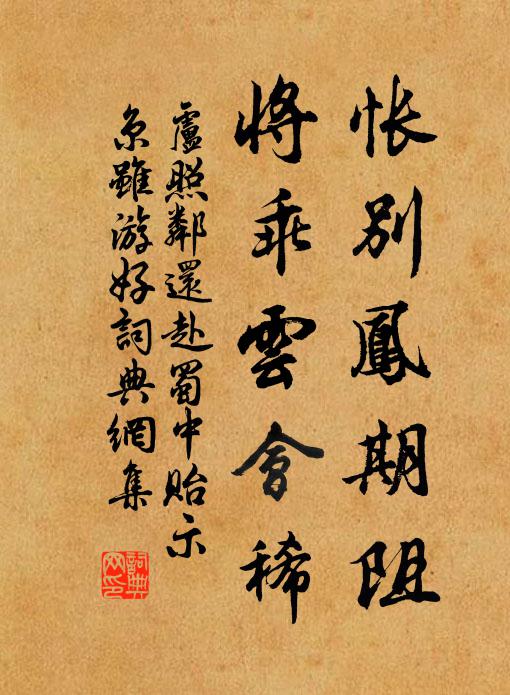 悵別鳳期阻
將乖雲會稀
盧照鄰還赴蜀中貽示
京雖游好詞典網集
詞典
网印